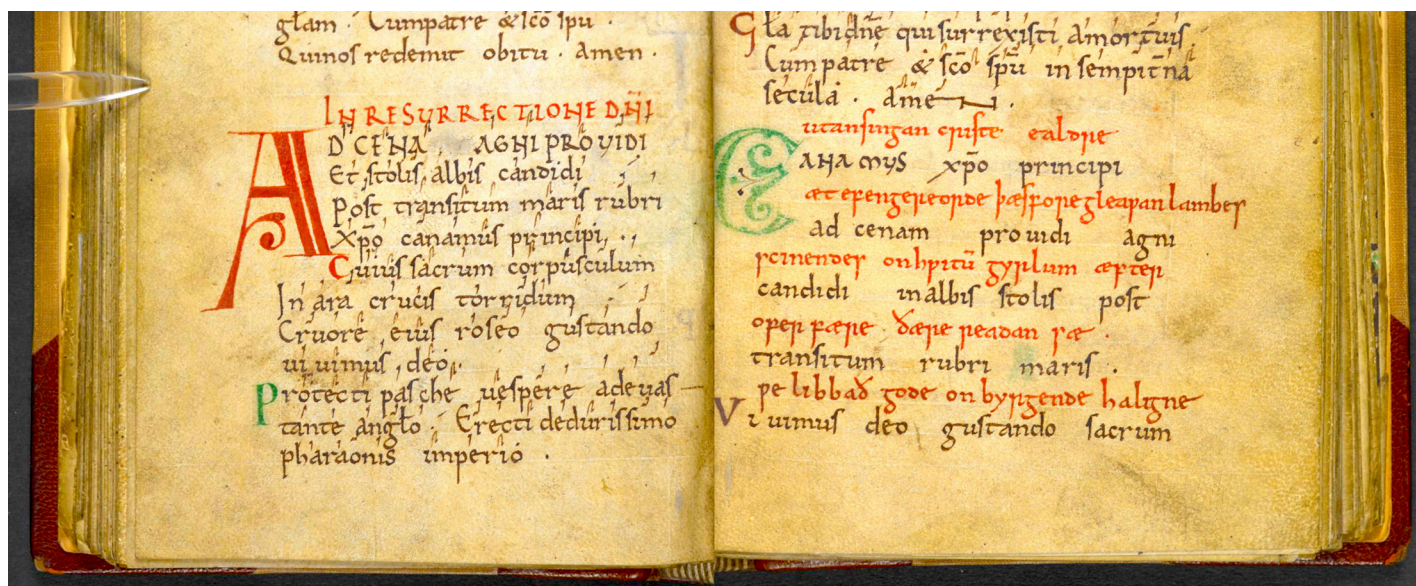 głam . Cumpatre & sc̄o spu .
Quinos redemit obitu . Amen .
IN RESURRECTIONE DN̄I
AD CENA AGNI PROVIDI
Et stolis albis candidi
Post transitum maris rubri
Xp̄o canamus principi,
Cuius sacrum corpusculum
In ara crucis torridum
Cruore eius roseo gustando
ui uimus deo.
Protecti pasche uespere adeuas
tante anglo . Erecti dedurissimo
pharaonis imperio .
Gła tibi dn̄e qui surrexisti amortuis
Cum patre & sc̄o sp̄u in sempit̄na
secula . ameN .
utansingan criste ealdre
CANAMUS xp̄o principi
æt þæs lambes
ad cenam prouidi agni
scinendes onhƿitū gyrlum æfter
candidi inalbis stolis post
oferfære ðære readan sæ .
transitum rubri maris .
ƿe libbað gode on byrgende haligne
Vi uimus deo gustando sacrum